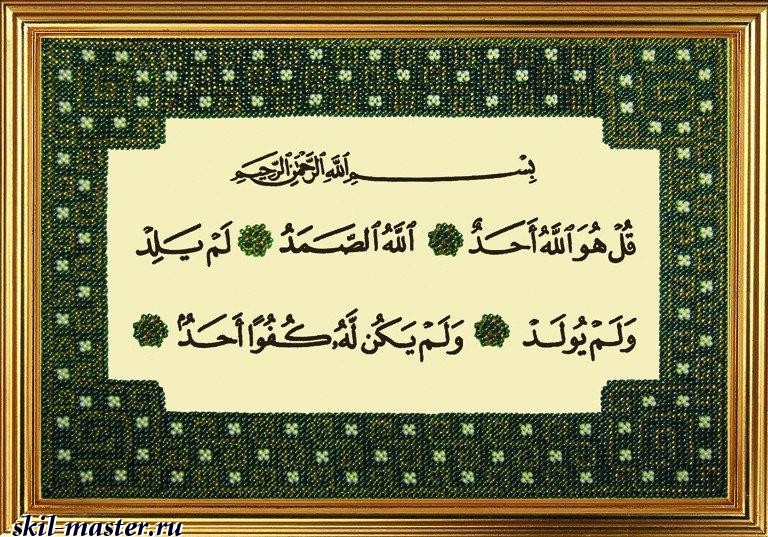 بِسْمِ ٱللَّهِ ٱلرَّحْمَٰنِ ٱلرَّحِيمِ
قُلْ هُوَ ٱللَّهُ أَحَدٌ ٱللَّهُ ٱلصَّمَدُ لَمْ يَلِدْ
وَلَمْ يُولَدْ وَلَمْ يَكُن لَّهُۥ كُفُوًا أَحَدٌۢ
skil-master.ru